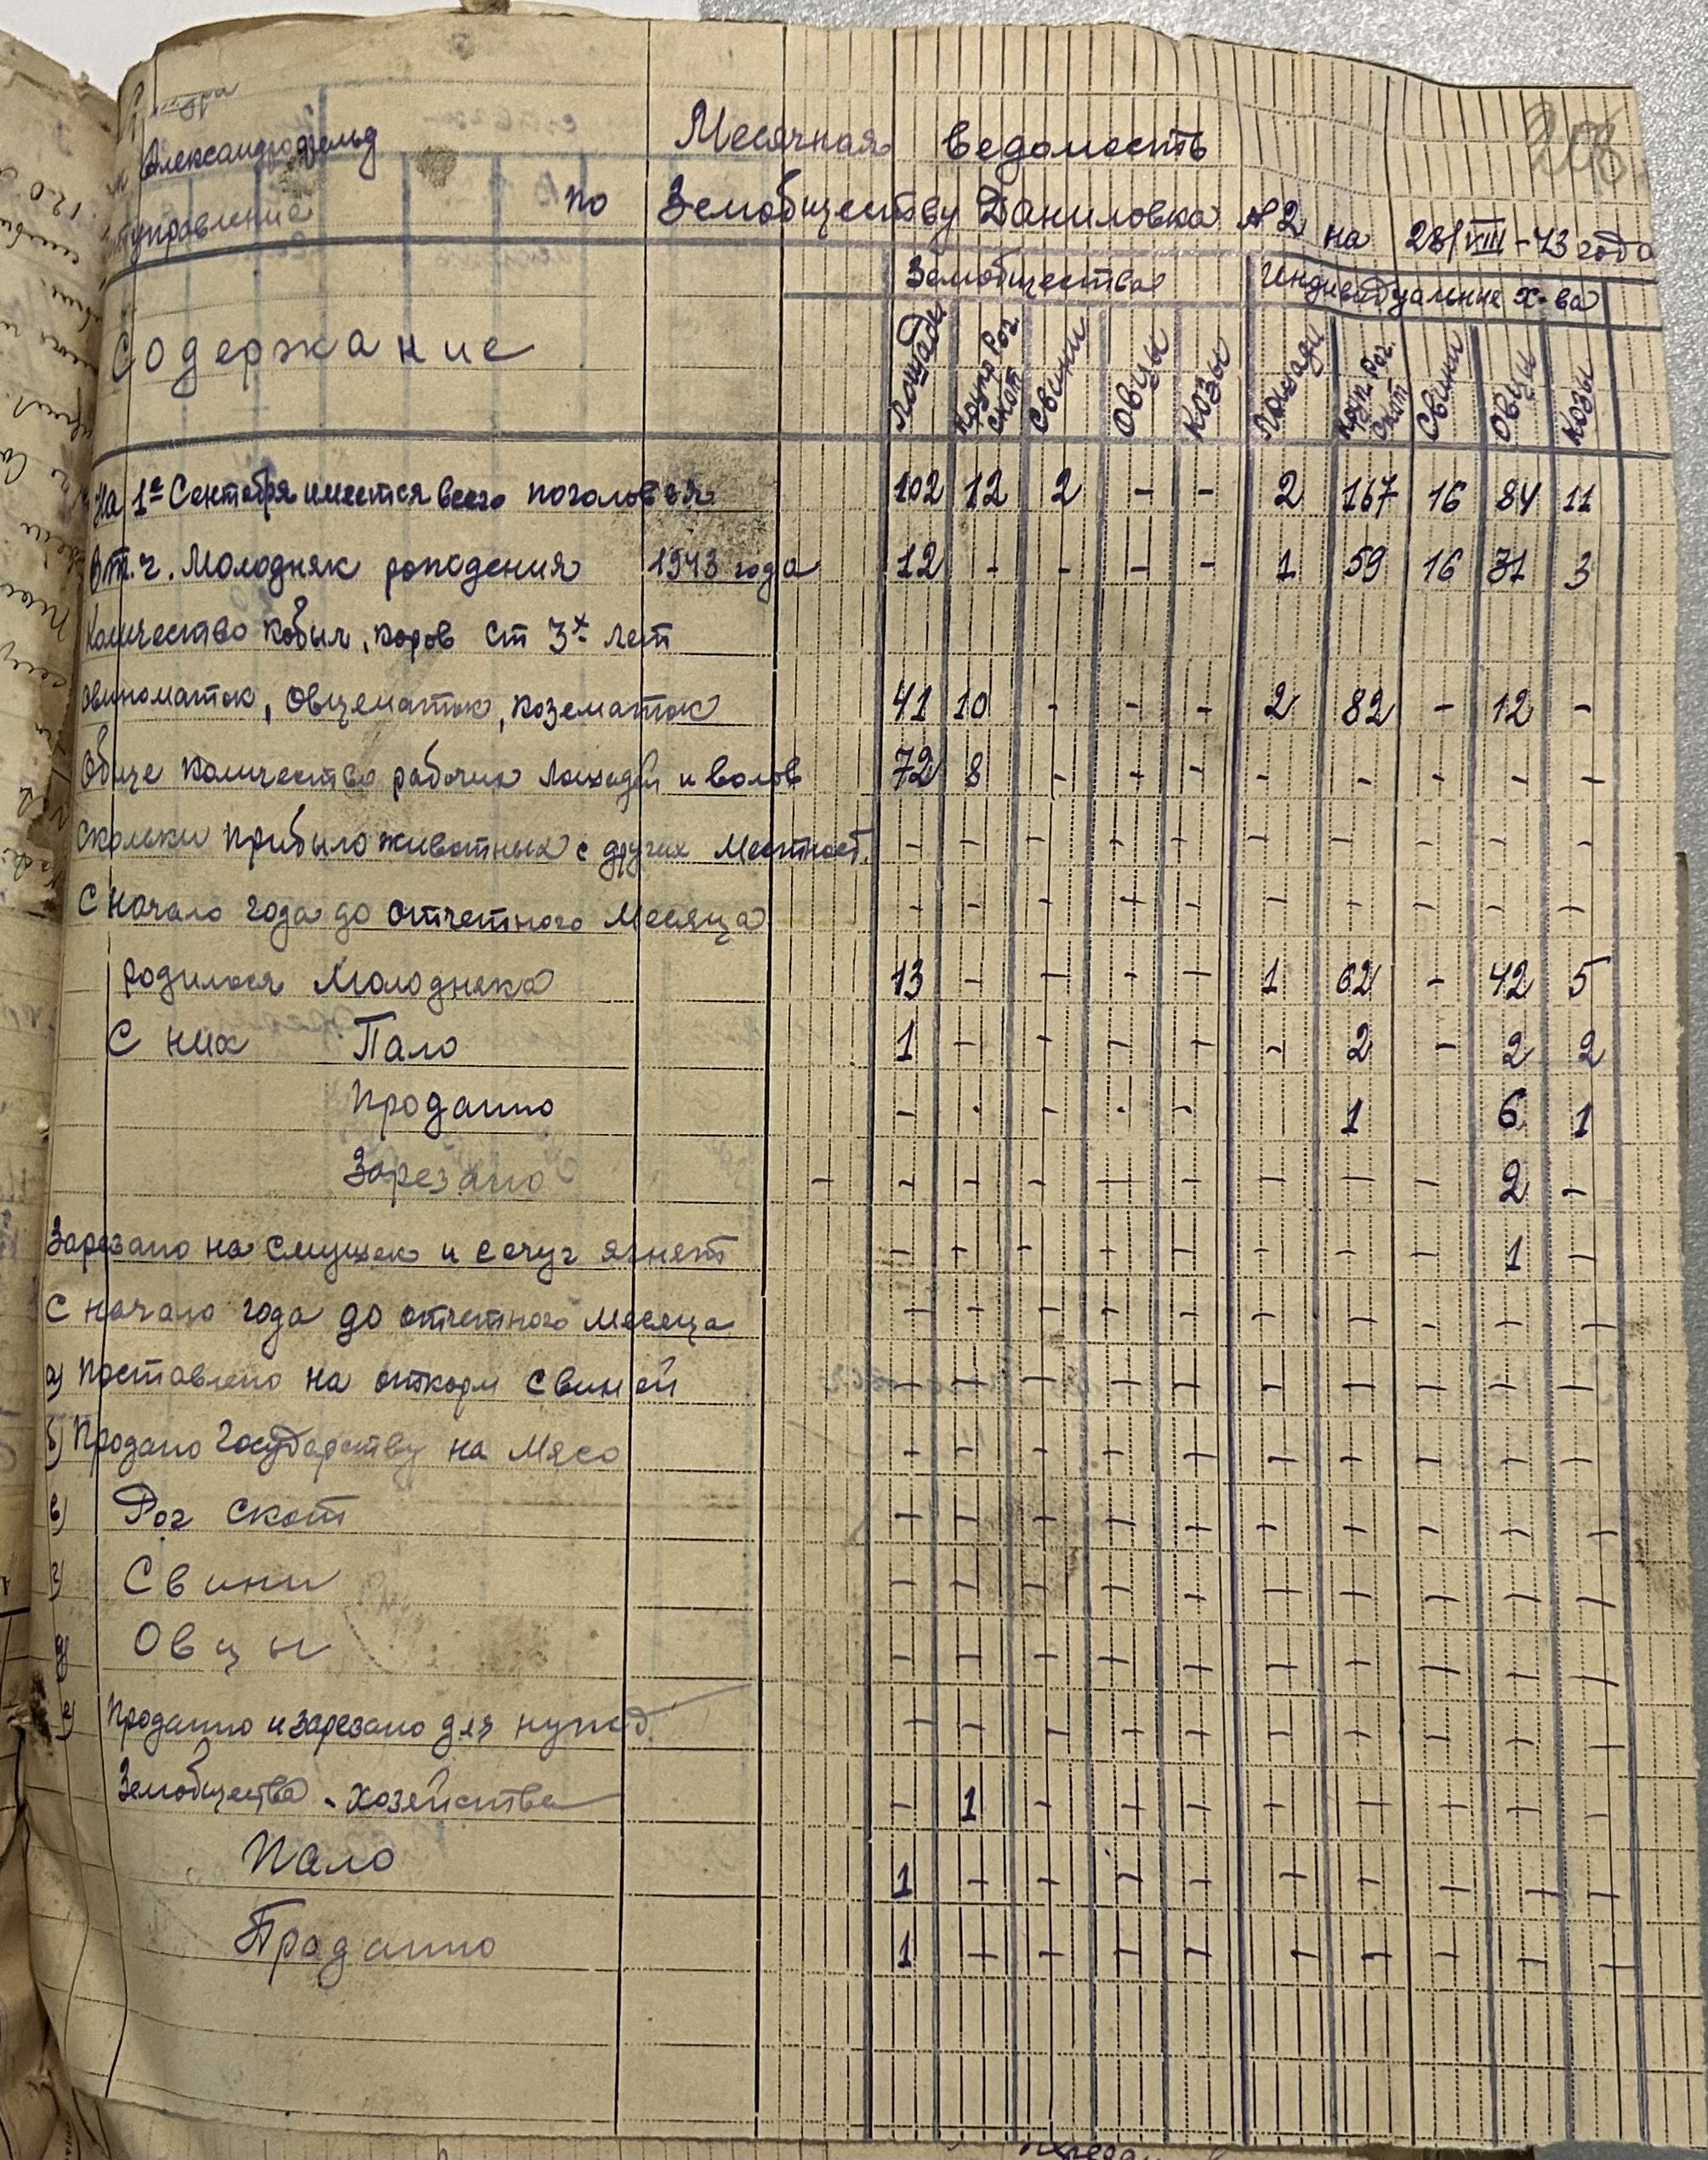 208
Александрофельд
Месячная ведомость
по Земобществу Даниловка №2 на 28/VIII-43 года
Содержание
Земобщества
Индивидуальние х-ва
Лошади Крупн Рог. скот Свини Овцы Козы Лошади Круп. Рог. скот Свини Овцы Козы
На 1е Сентября имеется всего поголовья 102 12 2 - - 2 167 16 84 11
В т.ч. Молодняк рождения 1943 года 12 - - - - 1 59 16 31 3
Количество кобыл, коров ст 3х лет
свиноматок, овцематок, козематок 41 10 - - - 2 82 - 12 -
Обще количество рабочих лошадей и волов 72 8 - - - - - - - -
Скольки прибыло животных с других Местност. - - - - - - - - - -
С начало года до отчетного Месяца - - - - - - - - - -
родилося Молодняка 13 - - - - 1 62 - 42 5
С них Пало 1 - - - - - 2 - 2 2
Проданно - - - - - 1 6 1
Зарезано - - - - - - - - - 2 -
Зарезано на Смушек и сечуг ягнят - - - - - - - - 1 -
С начало года до отчетного Месеца - - - - - - - - - -
а) Поставлено на откорм свиней - - - - - - - - - -
б) Продано Государству на Мясо - - - - - - - - - -
в) Рог скот - - - - - - - - - -
г) Свини - - - - - - - - - -
д) Овцы - - - - - - - - - -
е) Проданно и зарезано для нужд - - - - - - - - - -
Земобщества - хозяйства - 1 - - - - - - - -
Пало 1 - - - - - - - - -
Праданно 1 - - - - - - - - -